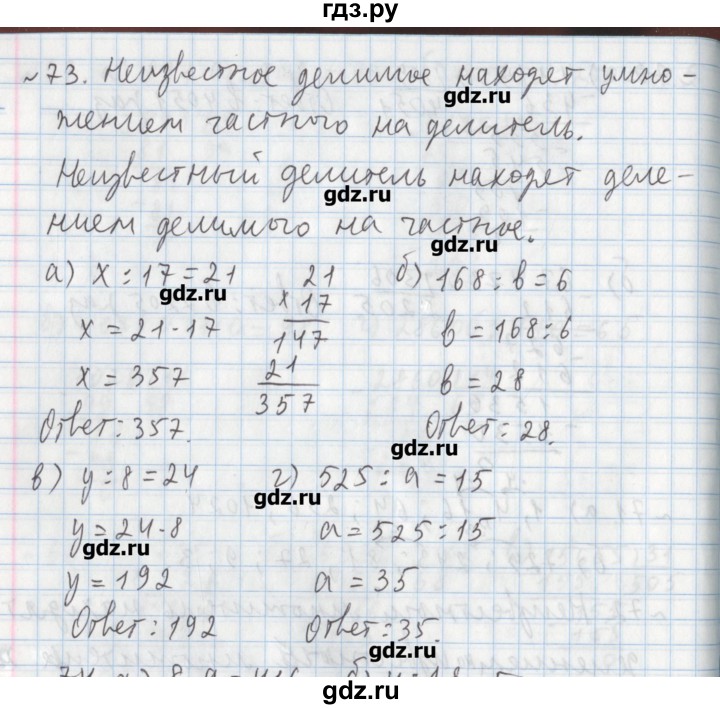 гдз.ру
№73. Неизвестное делимое находят умно-
gdz.ru
жением частного на делитель.
Неизвестный делитель находят деле-
gdz.ru
нием делимого на частное.
gdz.ru
а) x : 17 = 21
21
× 17
147
21
357
gdz.ru
x = 21 · 17
x = 357
Ответ: 357.
б) 168 : в = 6
в = 168 : 6
в = 28
Ответ: 28.
gdz.ru
в) y : 8 = 24
y = 24 · 8
gdz.ru
y = 192
Ответ: 192
г) 525 : a = 15
gdz.ru
a = 525 : 15
a = 35
Ответ: 35.
gdz.ru
gdz.ru